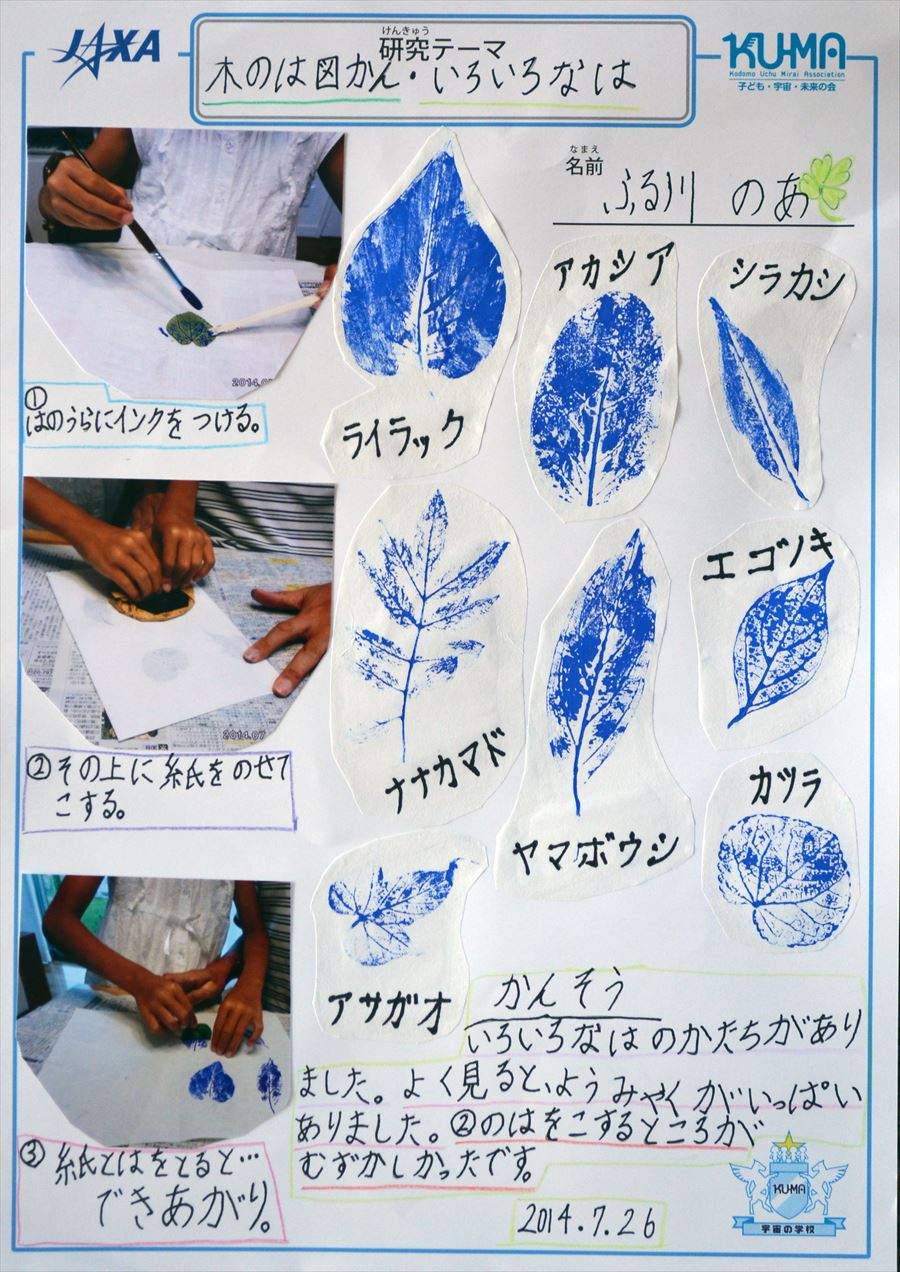 JAXA
けんきゅう
研究テーマ
木のは図かん・いろいろなは
KU-MA
Kodomo Uchu Mirai Association
子ども・宇宙・未来の会
なまえ
名前
ふる川 のあ
①
はのうらにインクをつける。
ライラック
アカシア
シラカシ
2014.07
②その上に紙をのせて
こする。
ナナカマド
ヤマボウシ
エゴノキ
カツラ
アサガオ
③紙とはをとると…
できあがり。
かんそう
いろいろなはのかたちがあり
ました。よく見ると、ようみゃくがいっぱい
ありました。②のはをこするところが
むずかしかったです。
2014.7.26
KU-MA
宇宙の学校